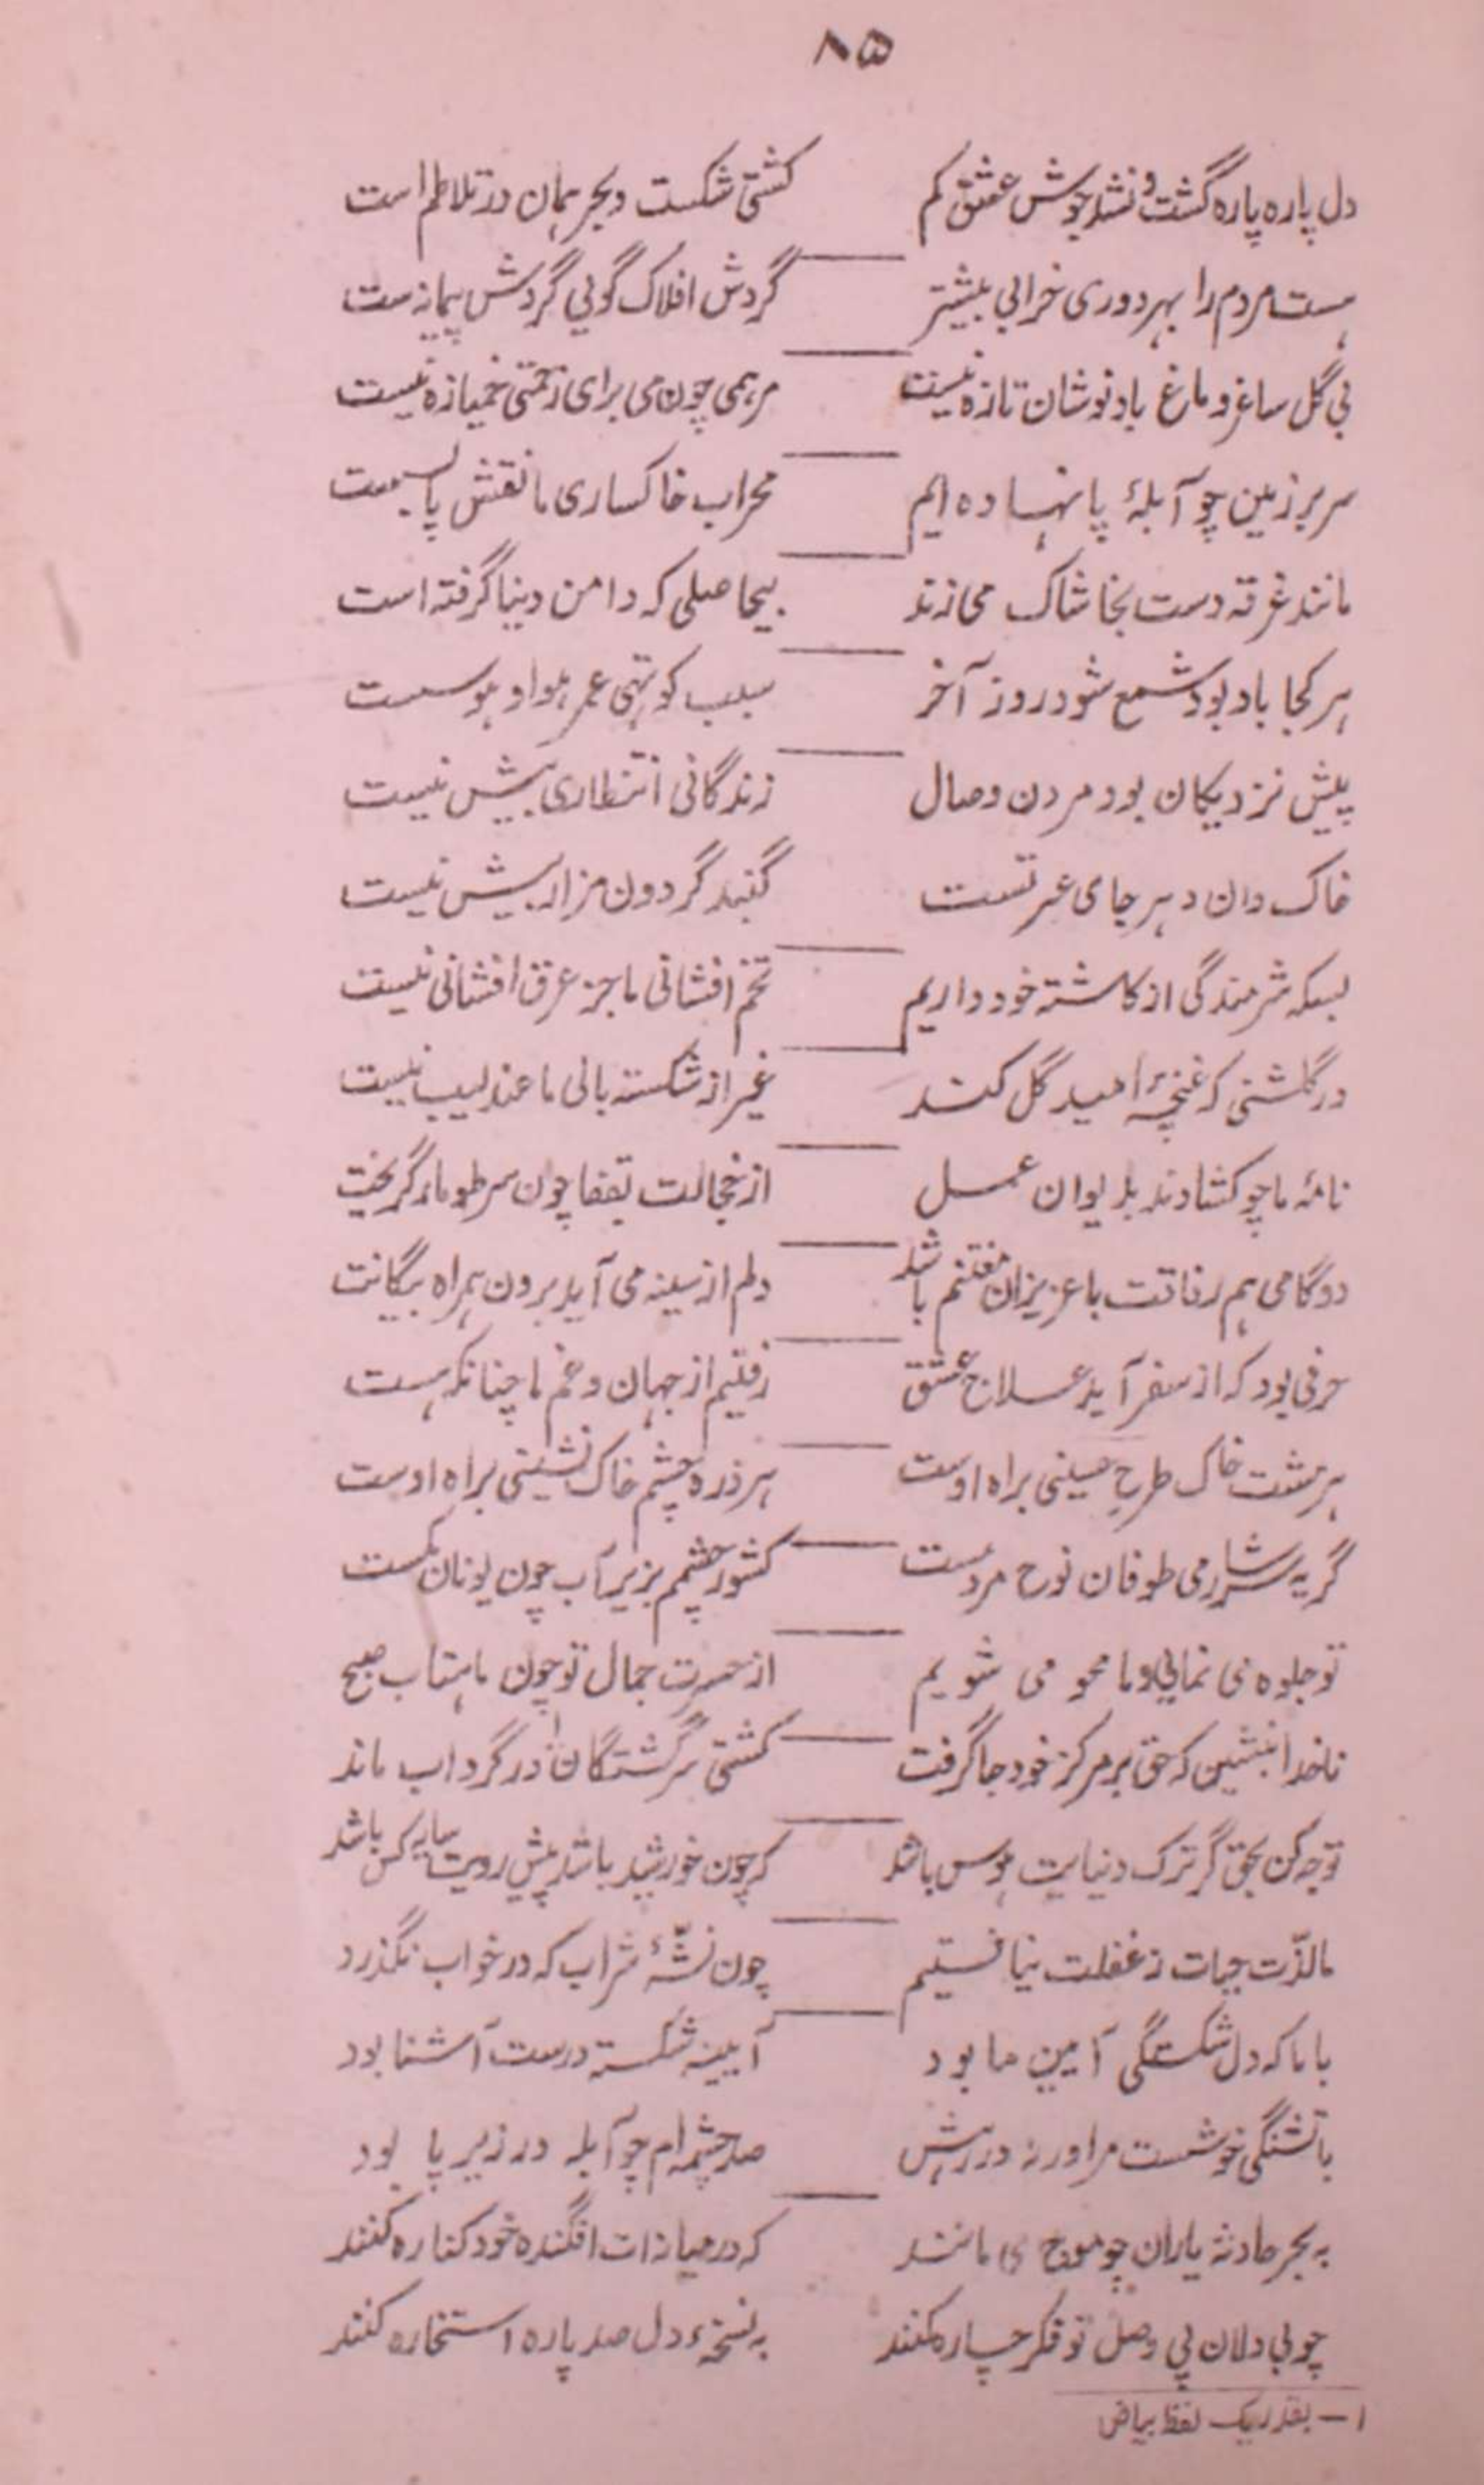 ۸۵
دل پاره پاره گشت و نشد جوش عشق کم کشتی شکست و بحر همان در تلاطم است
هست مردم را بهر دوری خرابی بیشتر گردش افلاک گویی گردش پیمانه‌ست
بی گل ساغر دماغ باده نوشان تازه نیست مرهمی چون می برای زخمی خمیازه نیست
سر بر زمین چو آبلهٔ پا نهاده ایم محراب خاکساری ما نقش پا بسست
مانند غرقه دست بخاشاک می‌زند بیحاصلی که دامن دنیا گرفته است
هر کجا باد بود شمع شود روز آخر سبب کوتهی عمر هوا و هوسست
پیش نزدیکان بود مردن وصال زندگانی انتظاری بیش نیست
خاک دان دهر جای عبرتست گنبد گردون مزاری بیش نیست
بسکه شرمندگی از کاشته خود داریم تخم افشانی ما جز عرق افشانی نیست
در گلشنی که غنچهٔ امید گل کند غیر از شکسته بالی ما عندلیب نیست
نامهٔ ما چو کشادند بدیوان عمل از خجالت بقفا چون سر طومار گریخت
دو گامی هم رفاقت با عزیزان مغتنم باشد دلم از سینه می آید برون همراه پیکانت
حرفی بود که از سفر آید علاج عشق رفتیم از جهان و غم ما چنانکه هست
هر مشت خاک طرح جبینی براه اوست هر ذره چشم خاک نشینی براه اوست
گریه سرشار می طوفان نوح مردست کشور چشمم بزیر آب چون یونان بسست
تو جلوه می نمایی و ما محو می شویم از حسرت جمال تو چون ماهتاب صبح
ناخدا بنشین که حق بر مرکز خود جا گرفت کشتی سرگشتگان ۱ در گرداب ماند
توجه کن بحق گر ترک دنیایت هوس باشد که چون خورشید باشد پیش رویت سایه کس باشد
ما لذّت حیات ز غفلت نیافتیم چون نشّهٔ شراب که در خواب بگذرد
با ما که دل شکستگی آیین ما بود آیینه شکسته درست آشنا بود
با تشنگی خوشست مرا ورنه در رهش صد چشمه ام چو آبله در زیر پا بود
به بحر حادثه یاران چو موج می مانند که در میانه ات افگنده خود کناره کنند
چو بی دلان پی وصل تو فکر چاره کنند به نسخهٔ دل صد پاره استخاره کنند
۱ – بقدر یک لفظ بیاض